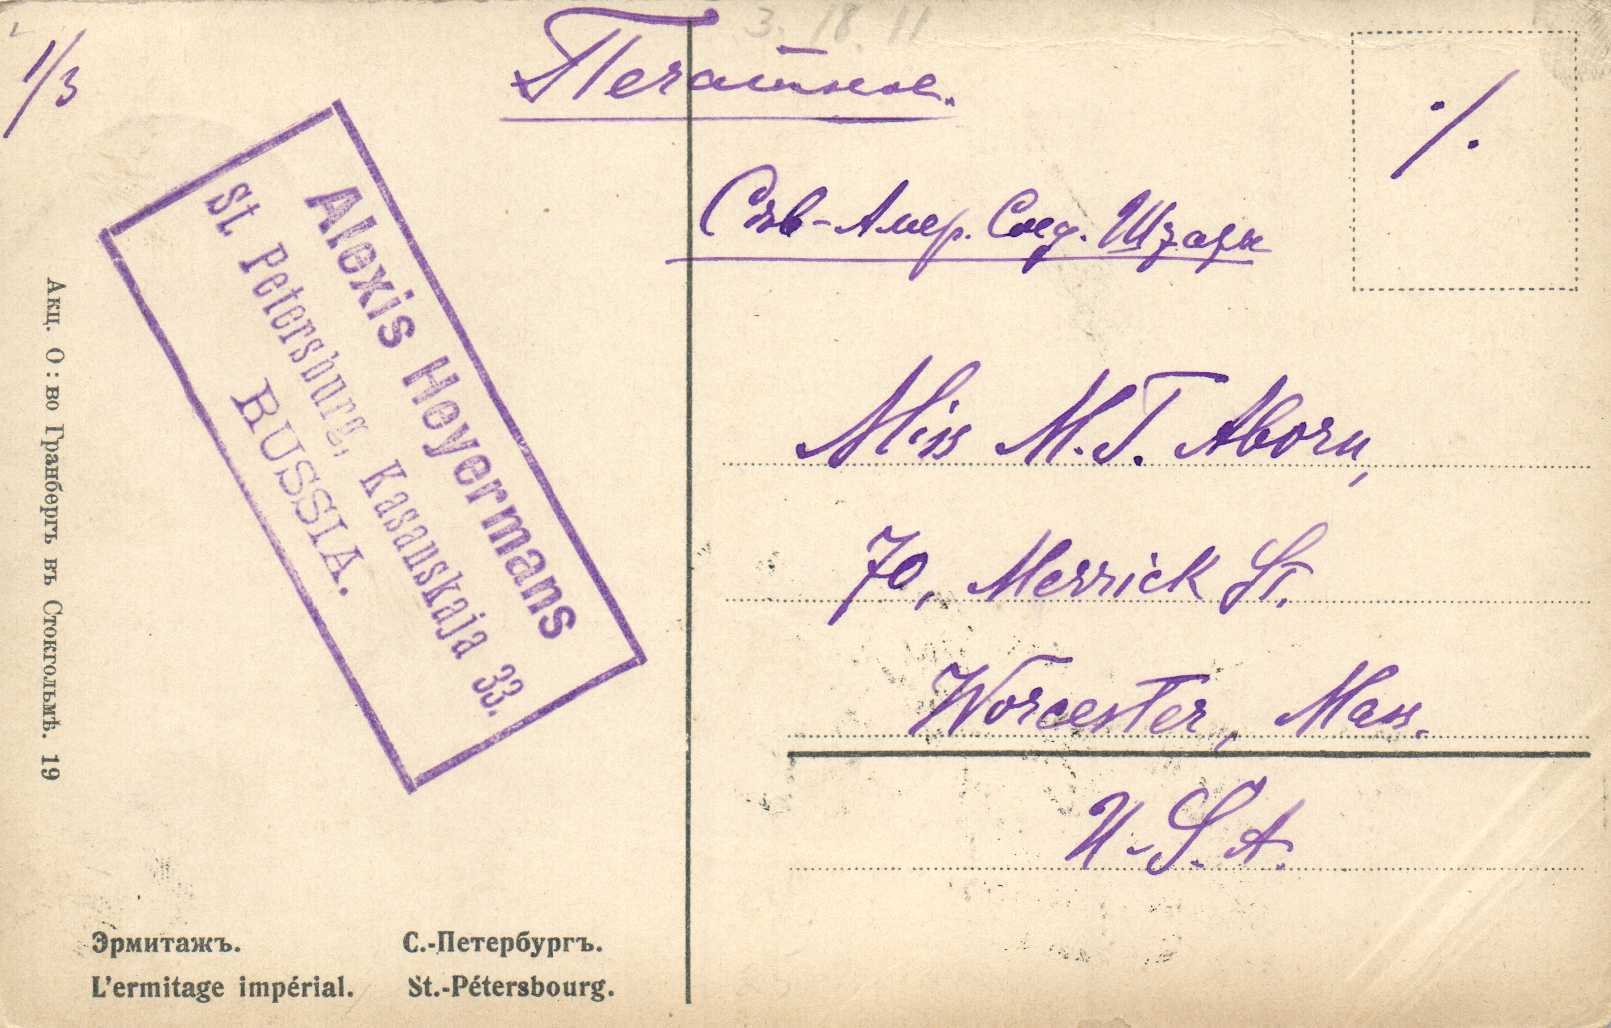 3.18.11
1/3
Печатное.
Alexis Heyermans
St. Petersburg, Kasauskaja 33.
RUSSIA.
Сѣв-Амер. Соед. Штаты
Miss M.T. Aborn,
70, Merrick St.
Worcester, Mass.
U.S.A.
Акц. О:во Гранбергъ въ Стокгольмѣ. 19
Эрмитажъ. С.-Петербургъ.
L'ermitage impérial. St.-Pétersbourg.